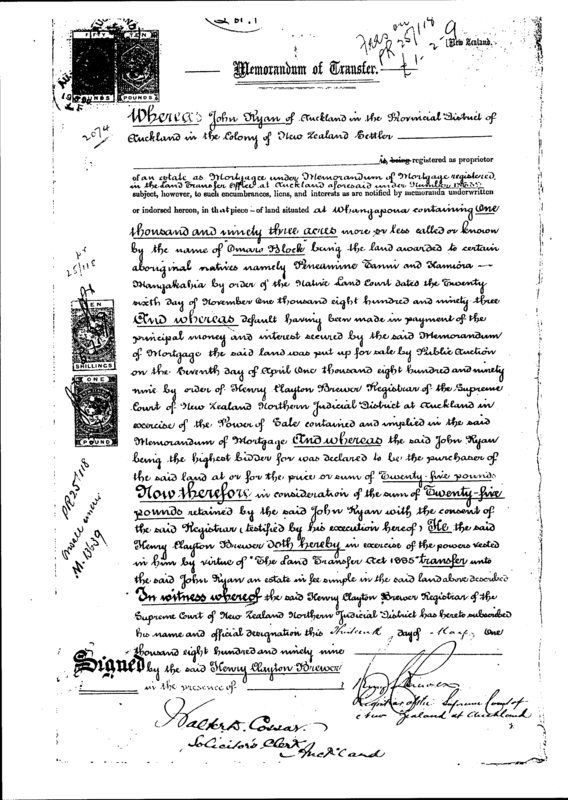 Fees on
PR 25/118
£1-2-9
[New Zealand.
FIFTY TEN
POUNDS POUNDS
Memorandum of Transfer.
Whereas John Ryan of Auckland in the Provincial District of
Auckland in the Colony of New Zealand Settler
2074
is, being registered as proprietor
of an estate as Mortgagee under Memorandum of Mortgage registered
in the Land Transfer Office at Auckland aforesaid under Number
subject, however, to such encumbrances, liens, and interests as are notified by memoranda underwritten
or indorsed hereon, in that piece of land situated at Whangapoua containing One
thousand and ninety three acres more or less called or known
by the name of "Omaro Block" being the land awarded to certain
aboriginal natives namely Peneamine Tanui and Hamiora
Mangakahia by order of the Native Land Court dated the Twenty
sixth day of November One thousand eight hundred and ninety three
And whereas default having been made in payment of the
principal money and interest secured by the said Memorandum
of Mortgage the said land was put up for sale by Public Auction
on the Seventh day of April One thousand eight hundred and ninety
nine by order of Henry Clayton Brewer Registrar of the Supreme
Court of New Zealand Northern Judicial District at Auckland in
exercise of the Power of Sale contained and implied in the said
Memorandum of Mortgage And whereas the said John Ryan
being the highest bidder for was declared to be the purchaser of
the said land at or for the price or sum of Twenty-five pounds
Now therefore in consideration of the sum of Twenty-five
pounds retained by the said John Ryan with the consent of
the said Registrar (testified by his execution hereof) He the said
Henry Clayton Brewer doth hereby in exercise of the powers vested
in him by virtue of "The Land Transfer Act 1885" transfer unto
the said John Ryan an estate in fee simple in the said land above described
In witness whereof the said Henry Clayton Brewer Registrar of the
Supreme Court of New Zealand Northern Judicial District has hereto subscribed
his name and official designation this day of May One
thousand eight hundred and ninety nine
Signed by the said Henry Clayton Brewer
in the presence of
Registrar of the Supreme Court of
New Zealand at Auckland
Walter D. Cossar
Solicitor's Clerk
Auckland
25/118
TEN
SHILLINGS
ONE
POUND
PR 25/118